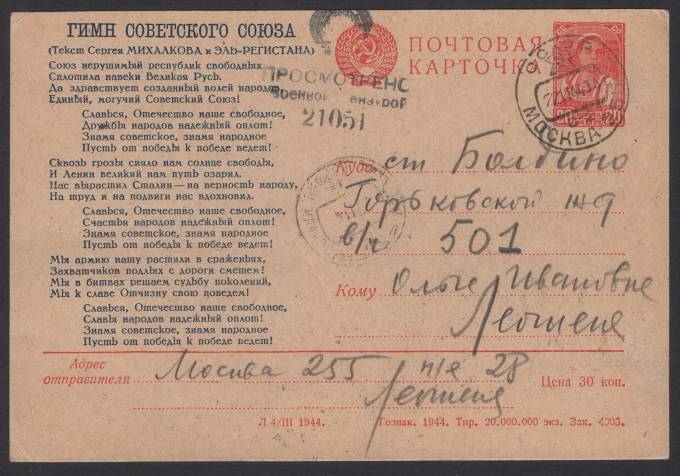 ГИМН СОВЕТСКОГО СОЮЗА
(Текст Сергея МИХАЛКОВА и ЭЛЬ-РЕГИСТАНА)
Союз нерушимый республик свободных
Сплотила навеки Великая Русь.
Да здравствует созданный волей народов
Единый, могучий Советский Союз!
Славься, Отечество наше свободное,
Дружбы народов надежный оплот!
Знамя советское, знамя народное
Пусть от победы к победе ведет!
Сквозь грозы сияло нам солнце свободы,
И Ленин великий нам путь озарил.
Нас вырастил Сталин — на верность народу,
На труд и на подвиги нас вдохновил.
Славься, Отечество наше свободное,
Счастья народов надежный оплот!
Знамя советское, знамя народное
Пусть от победы к победе ведет!
Мы армию нашу растили в сраженьях,
Захватчиков подлых с дороги сметем!
Мы в битвах решаем судьбу поколений,
Мы к славе Отчизну свою поведем!
Славься, Отечество наше свободное,
Славы народов надежный оплот!
Знамя советское, знамя народное
Пусть от победы к победе ведет!
ПОЧТОВАЯ
КАРТОЧКА
ПРОСМОТРЕНО
Военной Цензурой
21051
МОСКВА
20 20
Куда ст Болдино
Горьковской жд
в/ч 501
Кому Ольге Ивановне
Адрес
отправителя Москва 255 п/я 28
Цена 30 коп.
Л 4/III 1944. Гознак. 1944. Тир. 20.000.000 экз. Зак. 4005.